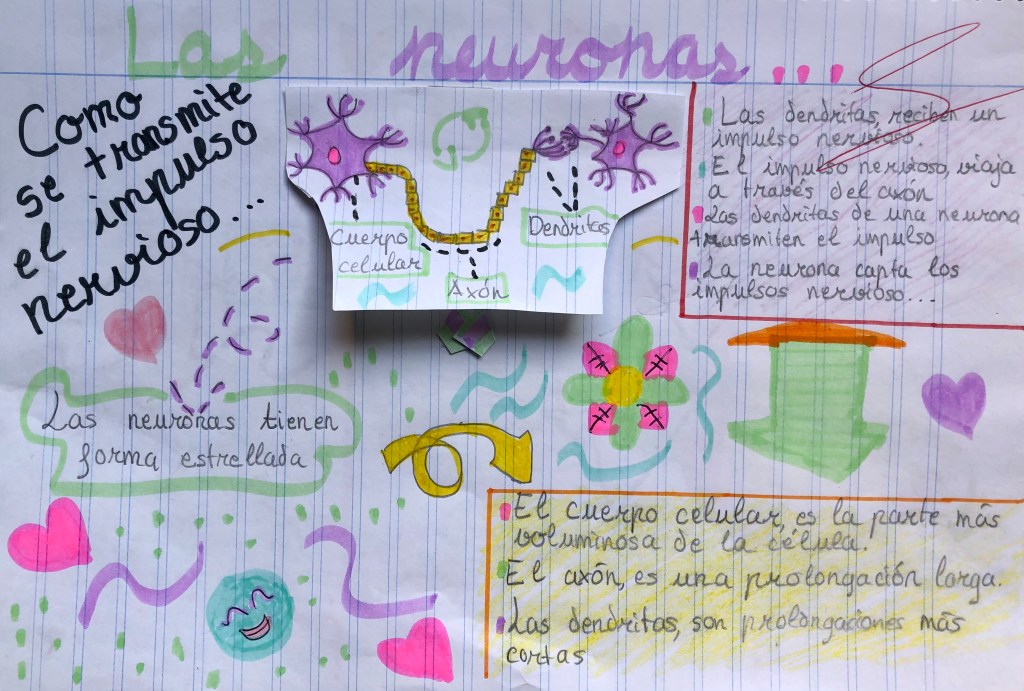 Las neuronas...
Como
se transmite
el impulso
nervioso...
Cuerpo
celular
Axón
Dendritas
Las dendritas, reciben un
impulso nervioso.
El impulso nervioso, viaja
a través del axón
Las dendritas de una neurona
transmiten el impulso
La neurona capta los
impulsos nervioso...
Las neuronas tienen
forma estrellada
El cuerpo celular, es la parte más
voluminosa de la célula.
El axón, es una prolongación larga.
Las dendritas, son prolongaciones más
cortas